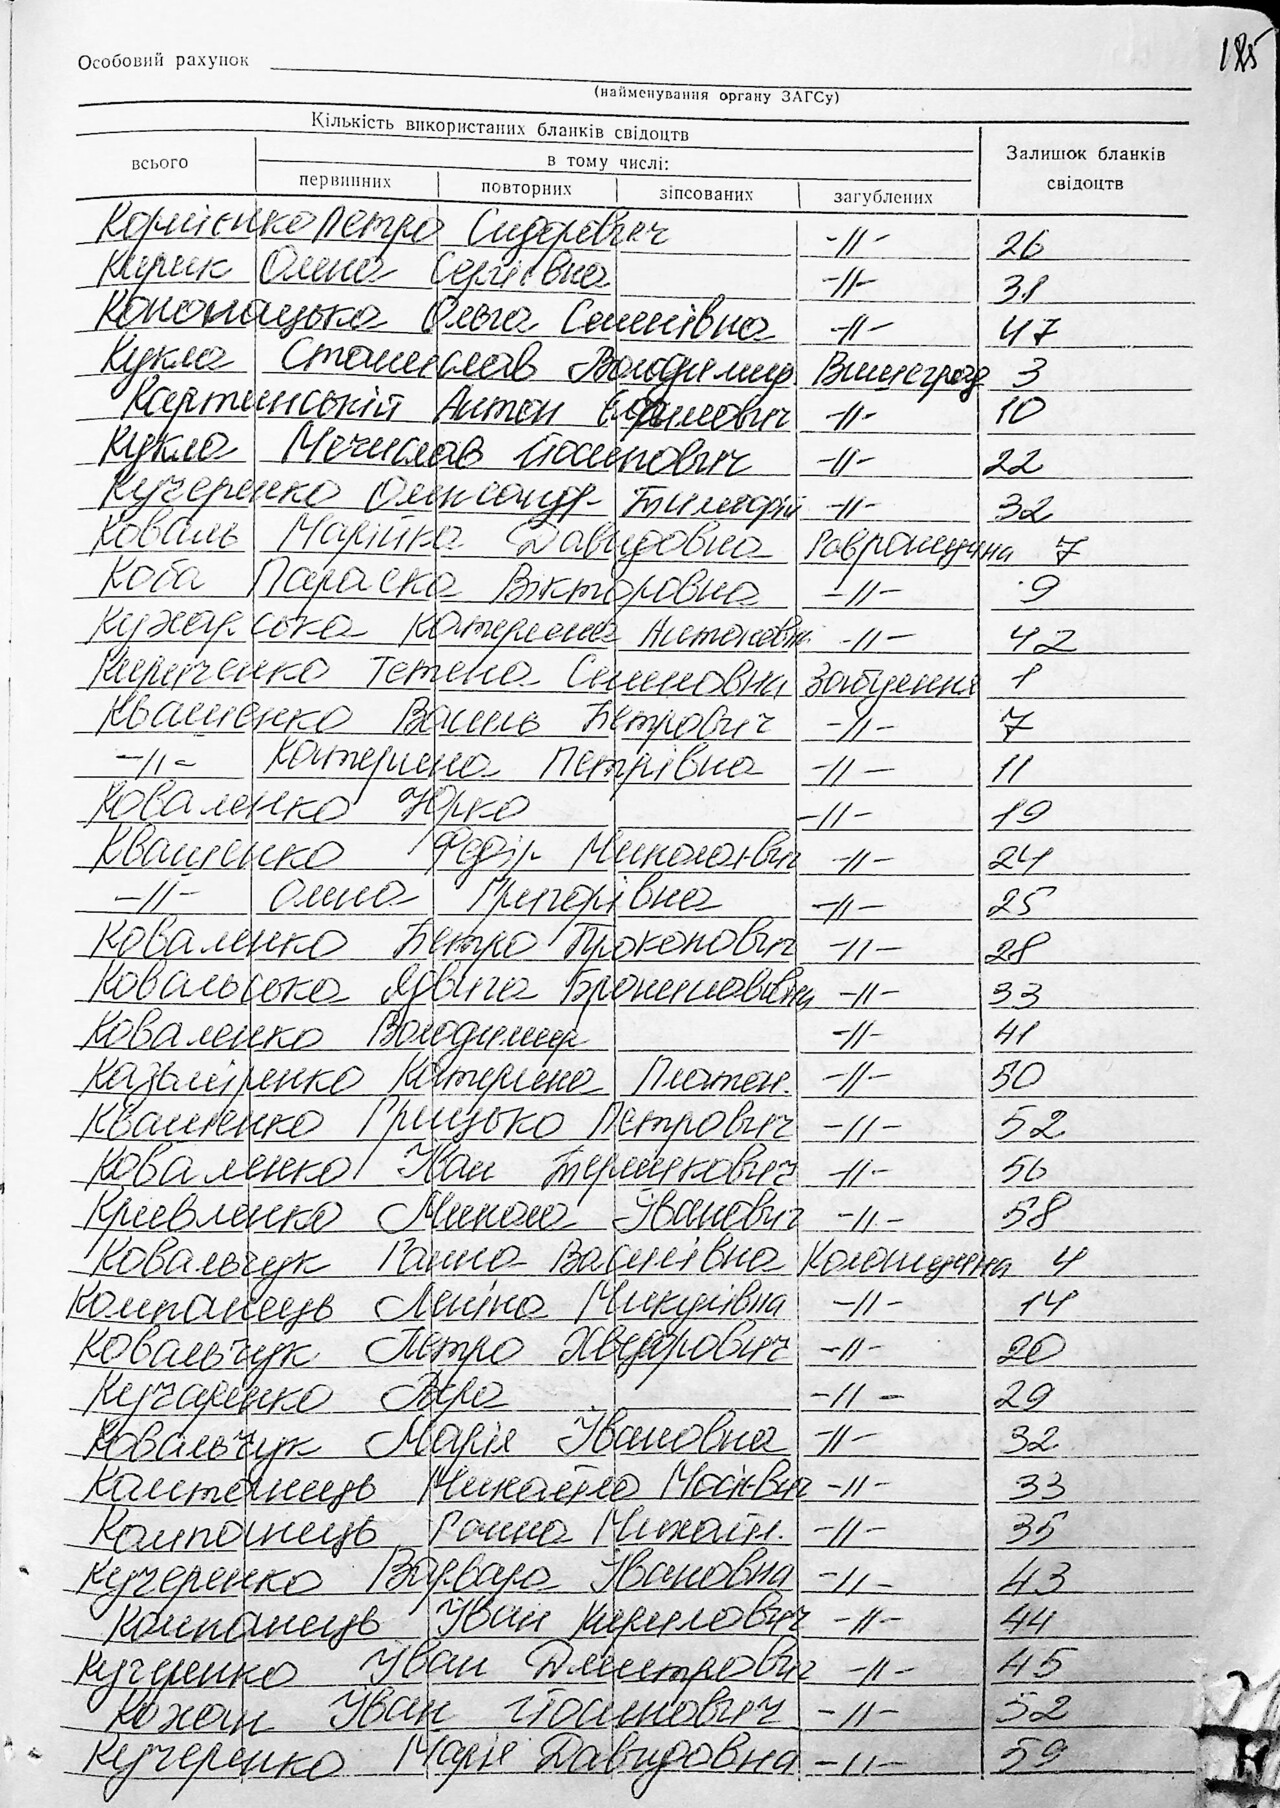 185
Особовий рахунок
(найменування органу ЗАГСу)
Кількість використаних бланків свідоцтв
Залишок бланків свідоцтв
всього
в тому числі:
первинних повторних зіпсованих загублених
Корнієнко Петро Сидорович -//- 26
Кирик Олена Сергіївна -//- 31
Кононацька Ольга Семенівна -//- 47
Кукла Станислав Володимир Виноград 3
Картинський Антон -//- 10
Кукла Мечислав Йосипович -//- 22
Кучеренко Олександр Тимофій -//- 32
Коваль Марійка Давидовна Гавронщина 7
Коба Параска Вікторовна -//- 9
Кухарська Катерина Антоновн -//- 42
Кириченко Тетяна Семеновна Забуяння 1
Квашенко Василь Петрович -//- 7
-//- Катерина Петрівна -//- 11
Коваленко Юрко -//- 19
Квашенко Федір Миколаєвич -//- 24
-//- Олена Григорівна -//- 25
Коваленко Петро Прокопович -//- 28
Ковальська Ядвига Брониславівна -//- 33
Коваленко Володимир -//- 41
Казьміренко Катерина Платон. -//- 50
Квашенко Грицько Петрович -//- 52
Коваленко Іван -//- 56
Кривленко Микола Іванович -//- 58
Ковальчук Ганна Василівна Колонщина 4
Компанець Меліна Микулівна -//- 14
Ковальчук Петро Хведорович -//- 20
Кучаренко -//- 29
Ковальчук Марія Івановна -//- 32
Компанець Михайло -//- 33
Компанець Ганна Михайл. -//- 35
Кучеренко Варвара Івановна -//- 43
Компанець Іван Кирилович -//- 44
Кучеренко Іван Дмитрович -//- 45
Кохан Іван Йосипович -//- 52
Кучеренко Марія Давидовна -//- 59